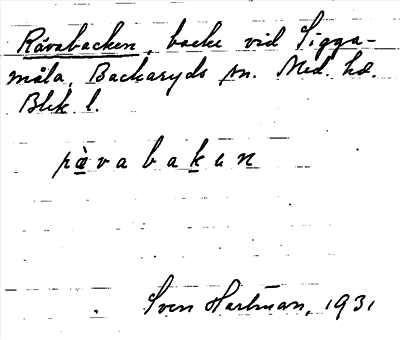 Råvabacken, backe vid Sigga-
måla, Backaryds sn. Med. hd.
Blek. l.
rè̱vabaḵen
Sven Hartman, 1931